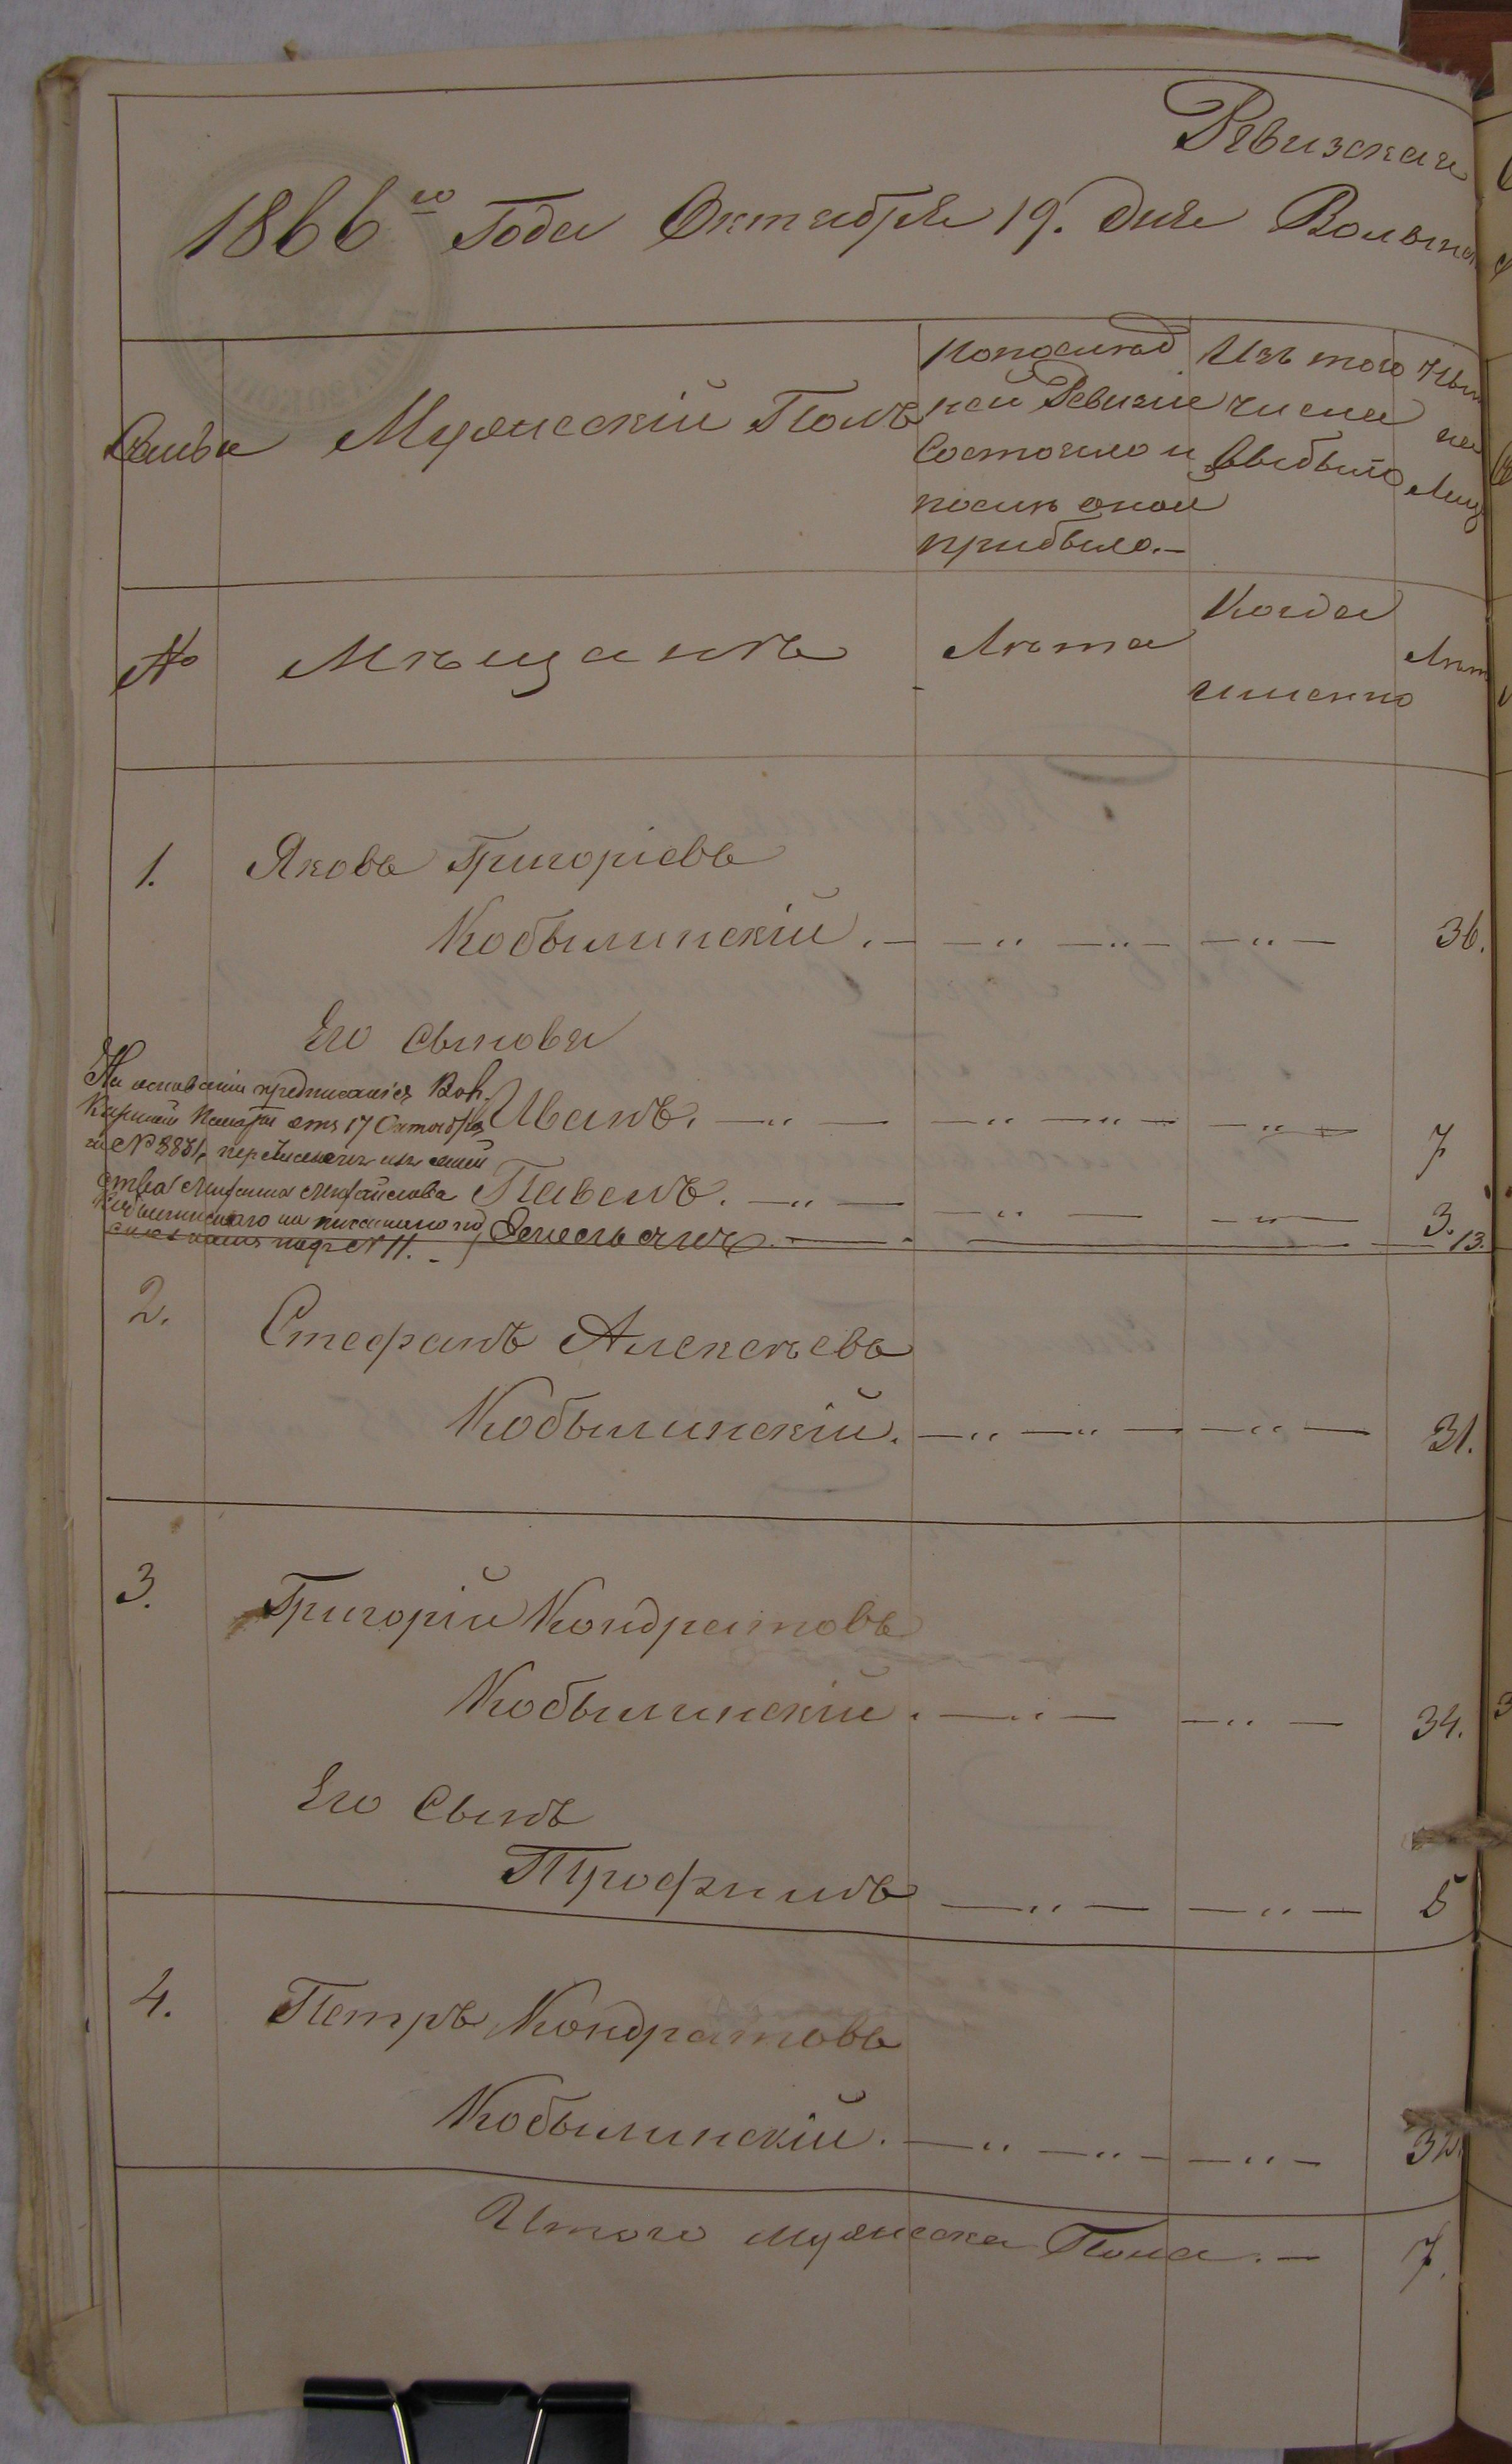 Ревизская
1866го Года Октября 19. дня Волынск
Семьи
Мужескій Полъ
По послѣд
ней Ревизіи
Состояло и
послѣ оной
прибыло.—
Изъ того
числа
Выбыло
Нын
на
Лиц
№
Мѣщанъ
Лѣта
Когда
именно
Лѣт
1. Яковъ Григоріевъ
Кобылинскій. 36.
Его сыновья
Иванъ. 7
Павелъ. 3.
На основаніи предписанія Вол.
Казенной Палаты отъ 17 Октября
за № 8831, перечисленъ изъ семей
ства Михайлова
Кобылинскаго
подъ № 11. —
Емельянъ. 13.
2. Стефанъ Алексѣевъ
Кобылинскій. 31.
3. Григорій Кондратовъ
Кобылинскій. 34.
Его Сынъ
Трофимъ 5
4. Петръ Кондратовъ
Кобылинскій. 32.
Итого мужеска Пола. — 7.